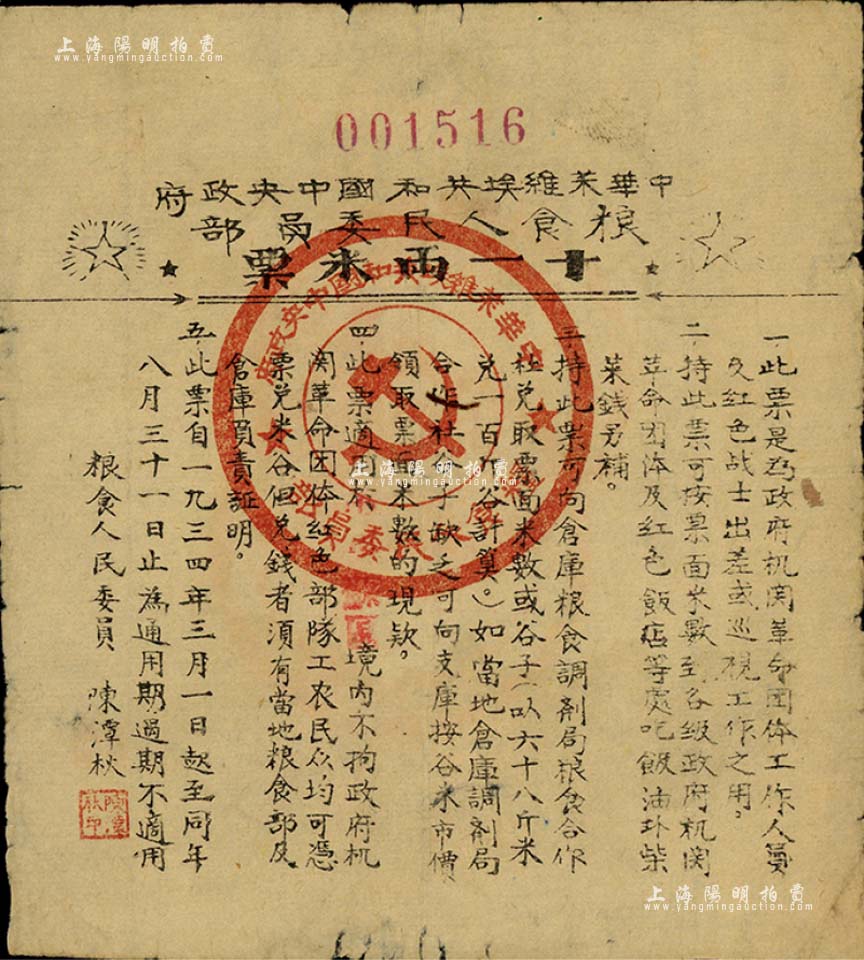 上海陽明拍賣
www.yangmingauction.com
001516
中華苏維埃共和國中央政府
粮食人民委員部
十一両米票
一、此票是為政府机関革命团体工作人員
及红色战士出差或巡視工作之用。
二、持此票可按票面米数到各級政府机関
革命团体及红色飯店等處吃飯油 柴
菜錢另補。
三、持此票可向倉庫粮食調剂局粮食合作
社兑取票面米数或谷子(以六十八斤米
兑一百斤谷計算。)如當地倉庫調剂局
合作社谷子缺乏可向支庫按谷米市價
領取票面米数的現欵。
四、此票適用於 境内不拘政府机
関革命团体红色部隊工农民众均可憑
票兑米谷但兑錢者須有當地粮食部及
倉庫負責証明。
五、此票自一九三四年三月一日起至同年
八月三十一日止為通用期過期不適用
粮食人民委員 陳潭秋
陳潭秋印
中華苏維埃共和國中央政府
粮食人民委員部
上海陽明拍賣
www.yangmingauction.com
上海陽明拍賣
www.yangmingauction.com